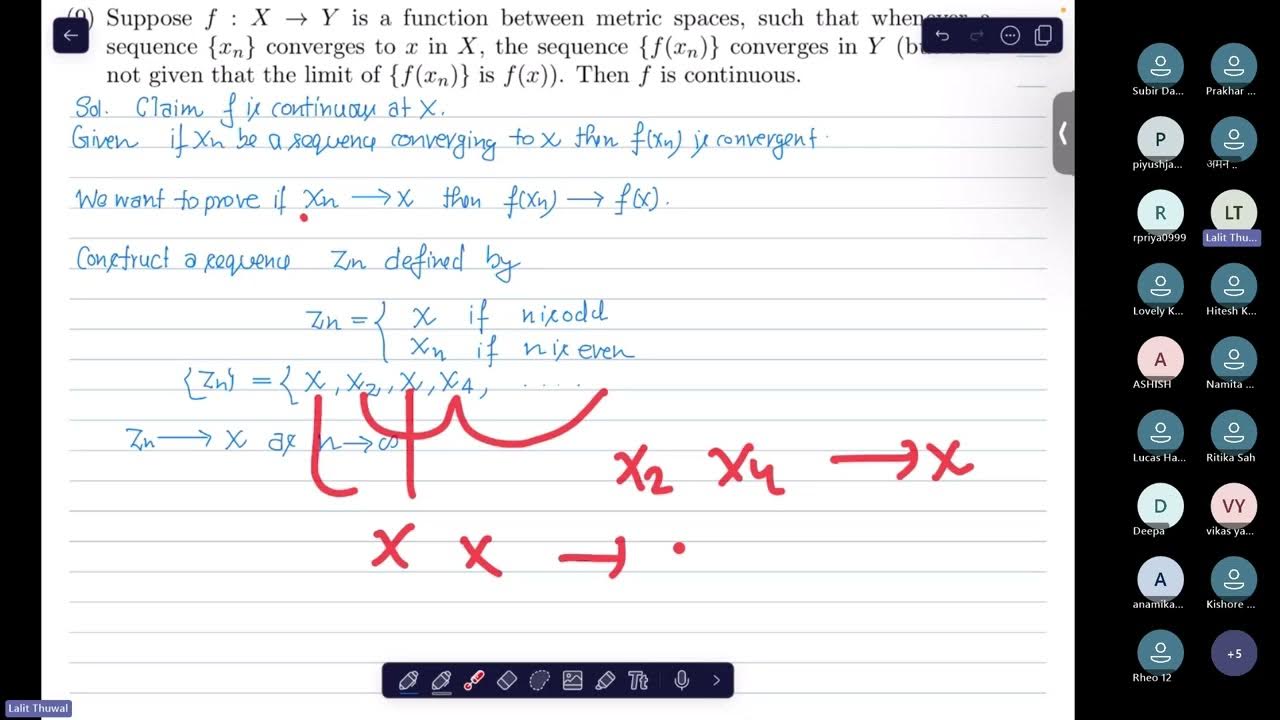 (9) Suppose f : X → Y is a function between metric spaces, such that whenever a
sequence {xn} converges to x in X, the sequence {f(xn)} converges in Y (but
not given that the limit of {f(xn)} is f(x)). Then f is continuous.
Sol. Claim f is continuous at x.
Given if xn be a sequence converging to x then f(xn) is convergent.
We want to prove if xn → x then f(xn) → f(x).
Construct a sequence Zn defined by
Zn = { x if n is odd
xn if n is even
{Zn} = { x, x2, x, x4, .....
Zn → x as n → ∞
x2 x4 → x
x x → .
Tt
Lalit Thuwal
Subir Da...
Prakhar ...
P
piyushja...
अमन ..
R
rpriya0999
LT
Lalit Thu...
Lovely K...
Hitesh K...
A
ASHISH
Namita ...
Lucas Ha...
Ritika Sah
D
Deepa
VY
vikas ya...
A
anamika...
Kishore ...
Rheo 12
+5